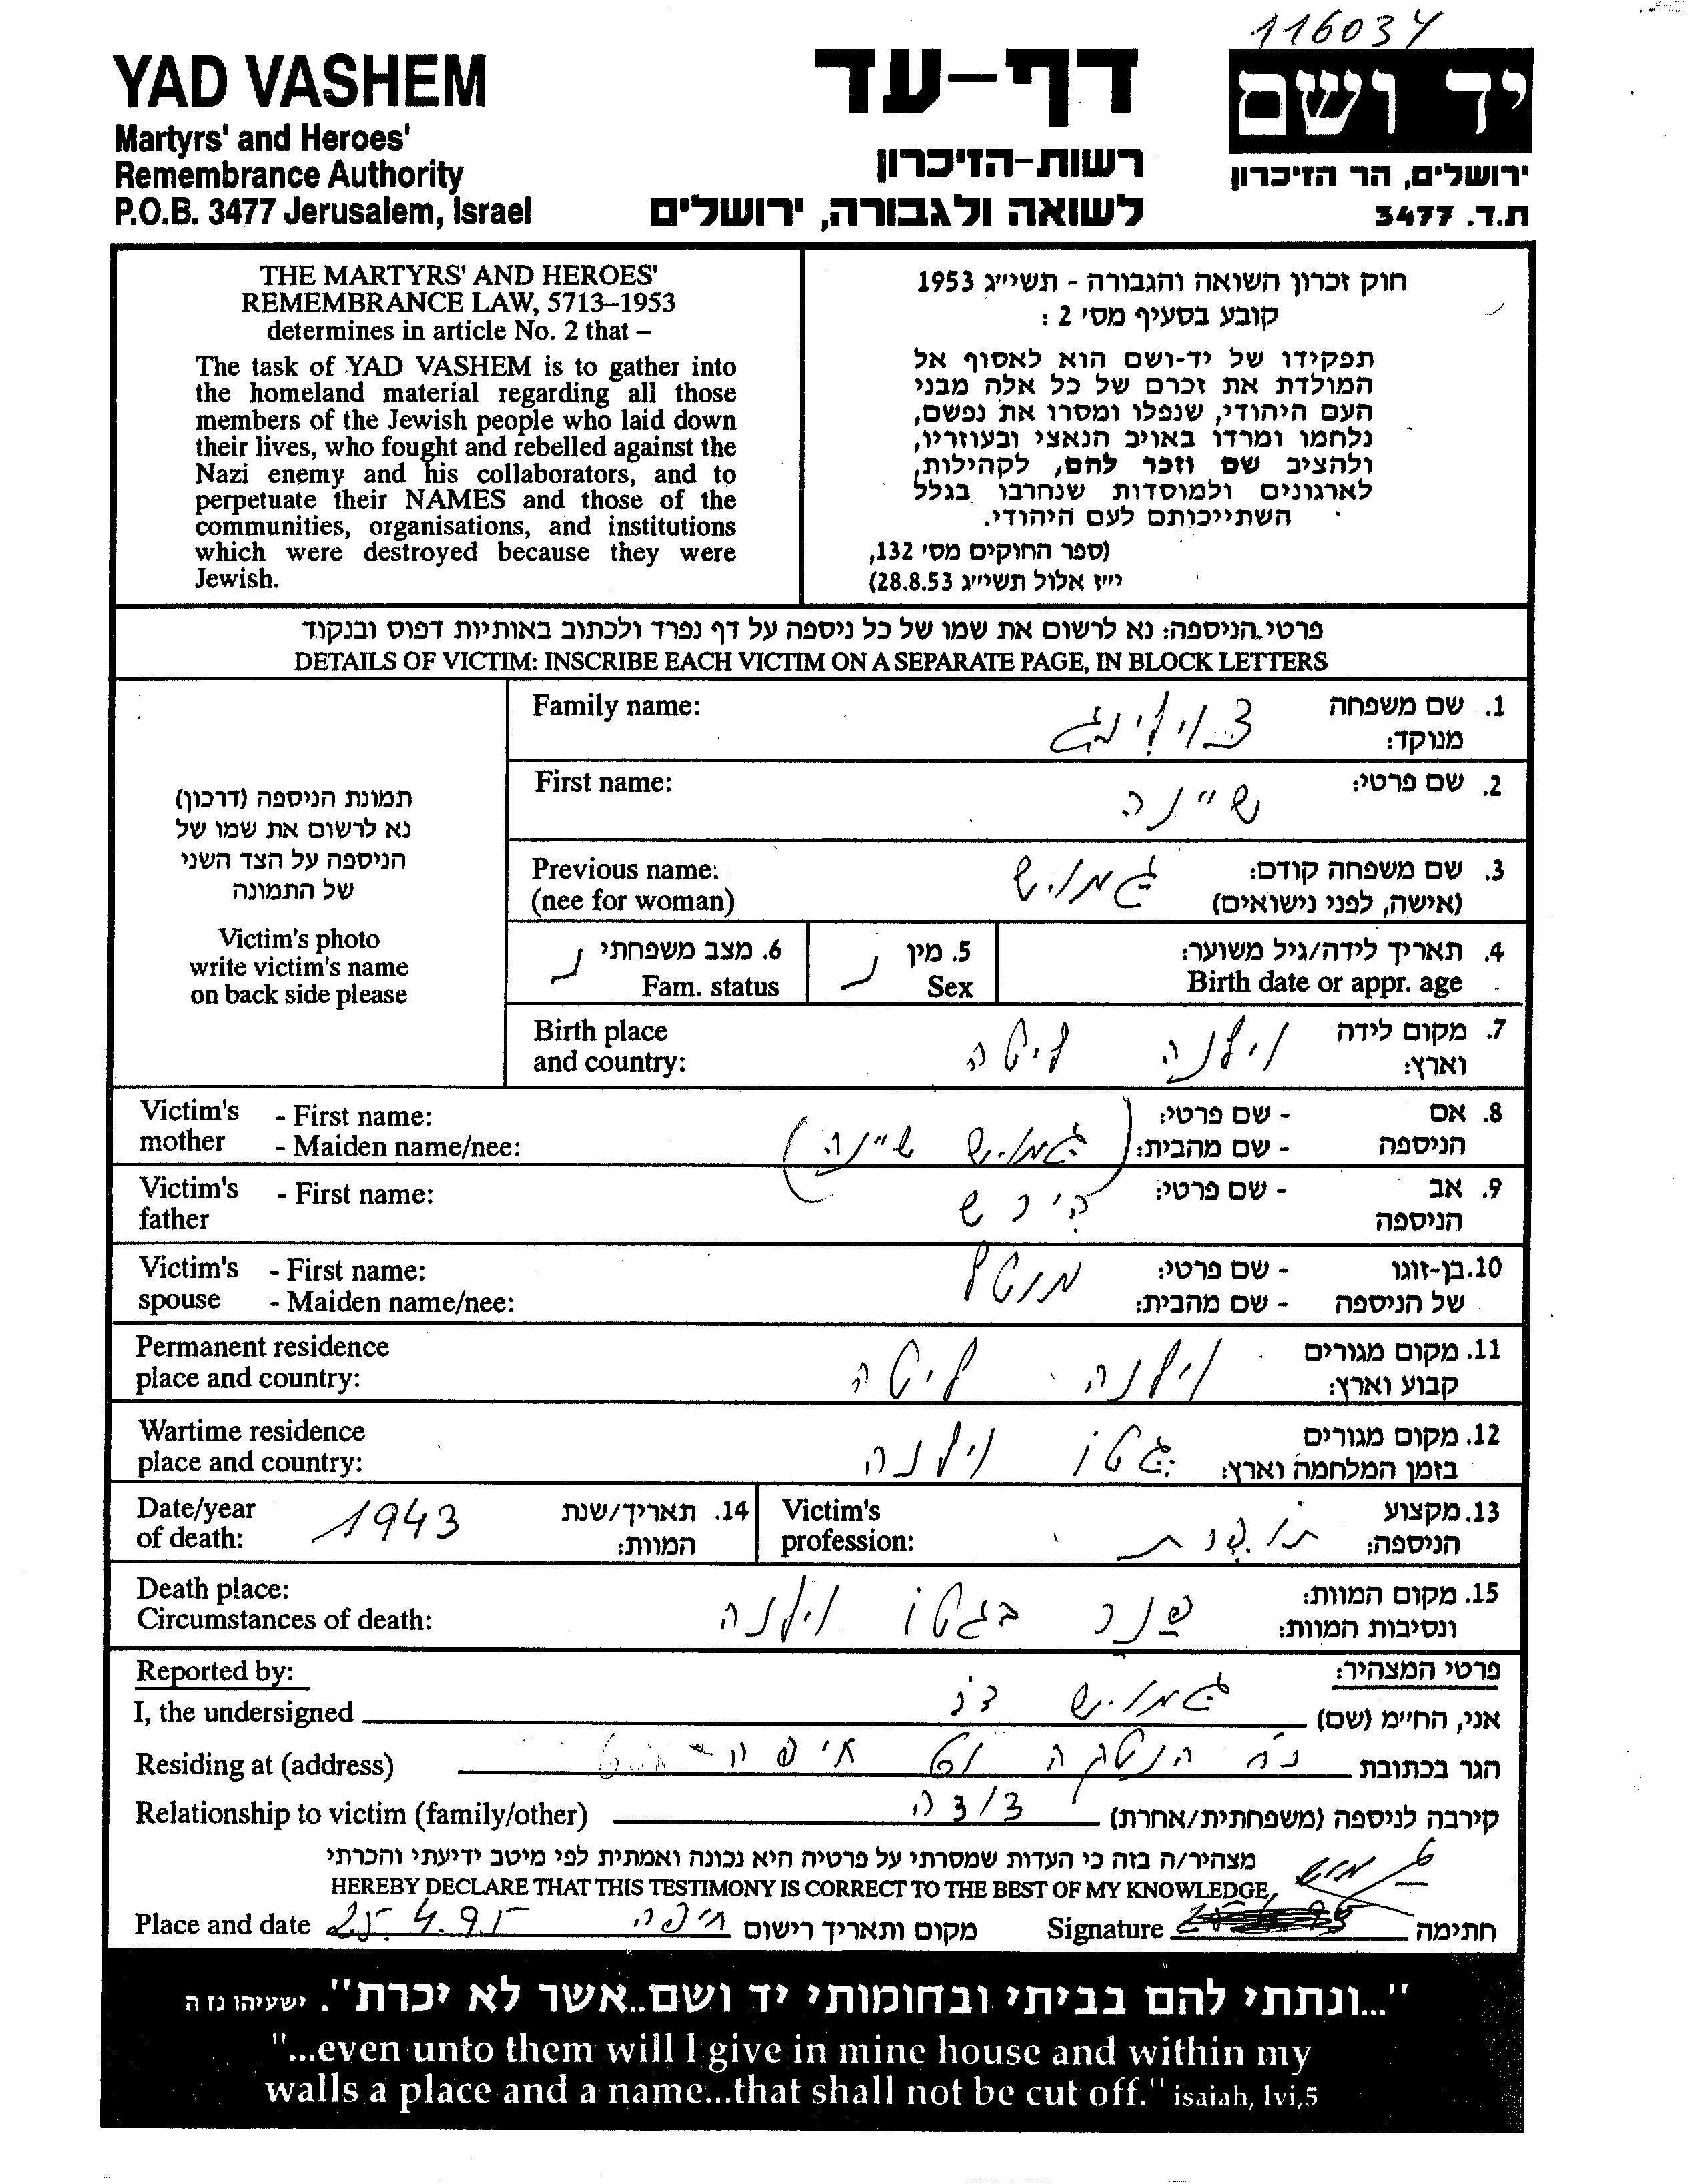 116034
YAD VASHEM
Martyrs' and Heroes'
Remembrance Authority
P.O.B. 3477 Jerusalem, Israel
דף-עד
רשות-הזיכרון
לשואה ולגבורה, ירושלים
יד ושם
ירושלים, הר הזיכרון
ת.ד. 3477
THE MARTYRS' AND HEROES'
REMEMBRANCE LAW, 5713–1953
determines in article No. 2 that –
The task of YAD VASHEM is to gather into
the homeland material regarding all those
members of the Jewish people who laid down
their lives, who fought and rebelled against the
Nazi enemy and his collaborators, and to
perpetuate their NAMES and those of the
communities, organisations, and institutions
which were destroyed because they were
Jewish.
חוק זכרון השואה והגבורה - תשי״ג 1953
קובע בסעיף מס׳ 2 :
תפקידו של יד-ושם הוא לאסוף אל
המולדת את זכרם של כל אלה מבני
העם היהודי, שנפלו ומסרו את נפשם,
נלחמו ומרדו באויב הנאצי ובעוזריו,
ולהציב שם וזכר להם, לקהילות,
לארגונים ולמוסדות שנחרבו בגלל
השתייכותם לעם היהודי.
(ספר החוקים מס׳ 132,
י״ז אלול תשי״ג 28.8.53)
פרטי הניספה: נא לרשום את שמו של כל ניספה על דף נפרד ולכתוב באותיות דפוס ובנקוד
DETAILS OF VICTIM: INSCRIBE EACH VICTIM ON A SEPARATE PAGE, IN BLOCK LETTERS
תמונת הניספה (דרכון)
נא לרשום את שמו של
הניספה על הצד השני
של התמונה
Victim's photo
write victim's name
on back side please
Family name: 1. שם משפחה
מנוקד:
First name: שיינה 2. שם פרטי:
Previous name: גמליש 3. שם משפחה קודם:
(nee for woman) (אישה, לפני נישואים)
6. מצב משפחתי נ 5. מין נ 4. תאריך לידה/גיל משוער:
Fam. status Sex Birth date or appr. age
Birth place וילנה ליטה 7. מקום לידה
and country: וארץ:
Victim's - First name: - שם פרטי: 8. אם
mother - Maiden name/nee: (גמליש שיינה) - שם מהבית: הניספה
Victim's - First name: הירש - שם פרטי: 9. אב
father הניספה
Victim's - First name: מוטל - שם פרטי: 10. בן-זוגו
spouse - Maiden name/nee: - שם מהבית: של הניספה
Permanent residence וילנה ליטה 11. מקום מגורים
place and country: קבוע וארץ:
Wartime residence גטו וילנה 12. מקום מגורים
place and country: בזמן המלחמה וארץ:
Date/year 1943 14. תאריך/שנת
of death: המוות:
Victim's תופרת 13. מקצוע
profession: הניספה:
Death place: פונר בגטו וילנה 15. מקום המוות:
Circumstances of death: ונסיבות המוות:
Reported by: פרטי המצהיר:
I, the undersigned גמליש אני, החיימ (שם)
Residing at (address) חיפה הגר בכתובת
Relationship to victim (family/other) קירבה לניספה (משפחתית/אחרת)
מצהיר/ה בזה כי העדות שמסרתי על פרטיה היא נכונה ואמתית לפי מיטב ידיעתי והכרתי
HEREBY DECLARE THAT THIS TESTIMONY IS CORRECT TO THE BEST OF MY KNOWLEDGE,
Place and date 25.4.95 חיפה מקום ותאריך רישום Signature חתימה
"...ונתתי להם בביתי ובחומותי יד ושם..אשר לא יכרת". ישעיהו נו ה
"...even unto them will I give in mine house and within my
walls a place and a name...that shall not be cut off." isaiah, lvi,5